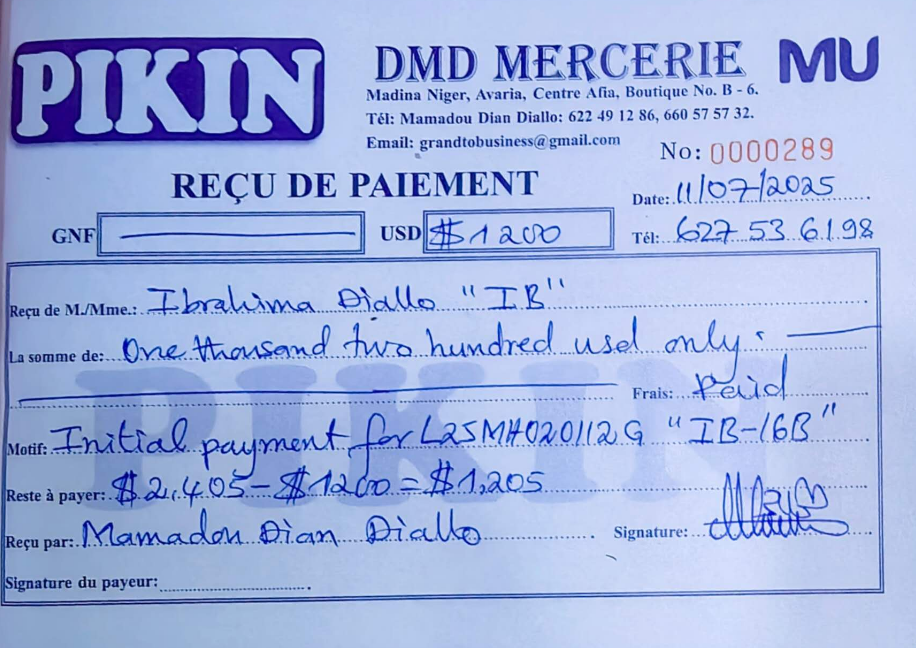 PIKIN
DMD MERCERIE
MU
Madina Niger, Avaria, Centre Afia, Boutique No. B - 6.
Tél: Mamadou Dian Diallo: 622 49 12 86, 660 57 57 32.
Email: grandtobusiness@gmail.com
No: 0000289
REÇU DE PAIEMENT
Date: 11/07/2025
GNF
USD $1200
Tél: 627 53 61 98
Reçu de M./Mme.: Ibrahima Diallo "IB"
La somme de: One thousand two hundred usd only.
Frais: Paid
Motif: Initial payment for L25MH020112G "IB-16B"
Reste à payer: $2,405-$1200=$1,205
Reçu par: Mamadou Dian Diallo
Signature:
Signature du payeur:
PIKIN